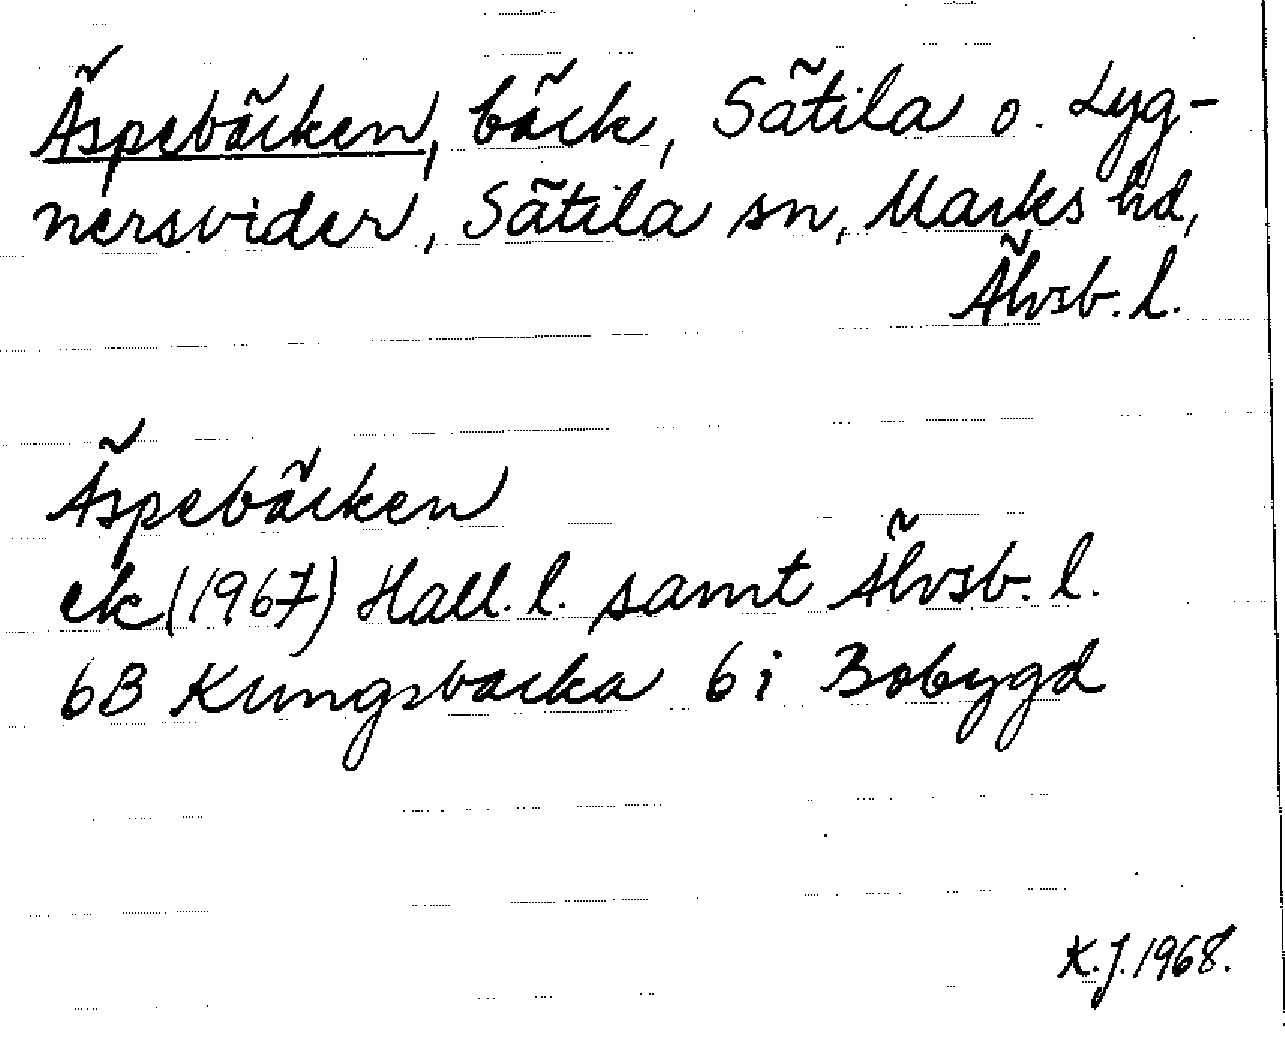 Äspebäcken, bäck, Sätila o. Lyg-
nersvider, Sätila sn, Marks hd,
Älvsb. l.
Äspebäcken
ek (1967) Hall. l. samt Älvsb. l.
6B Kungsbacka 6 i Bobygd
K.J. 1968.